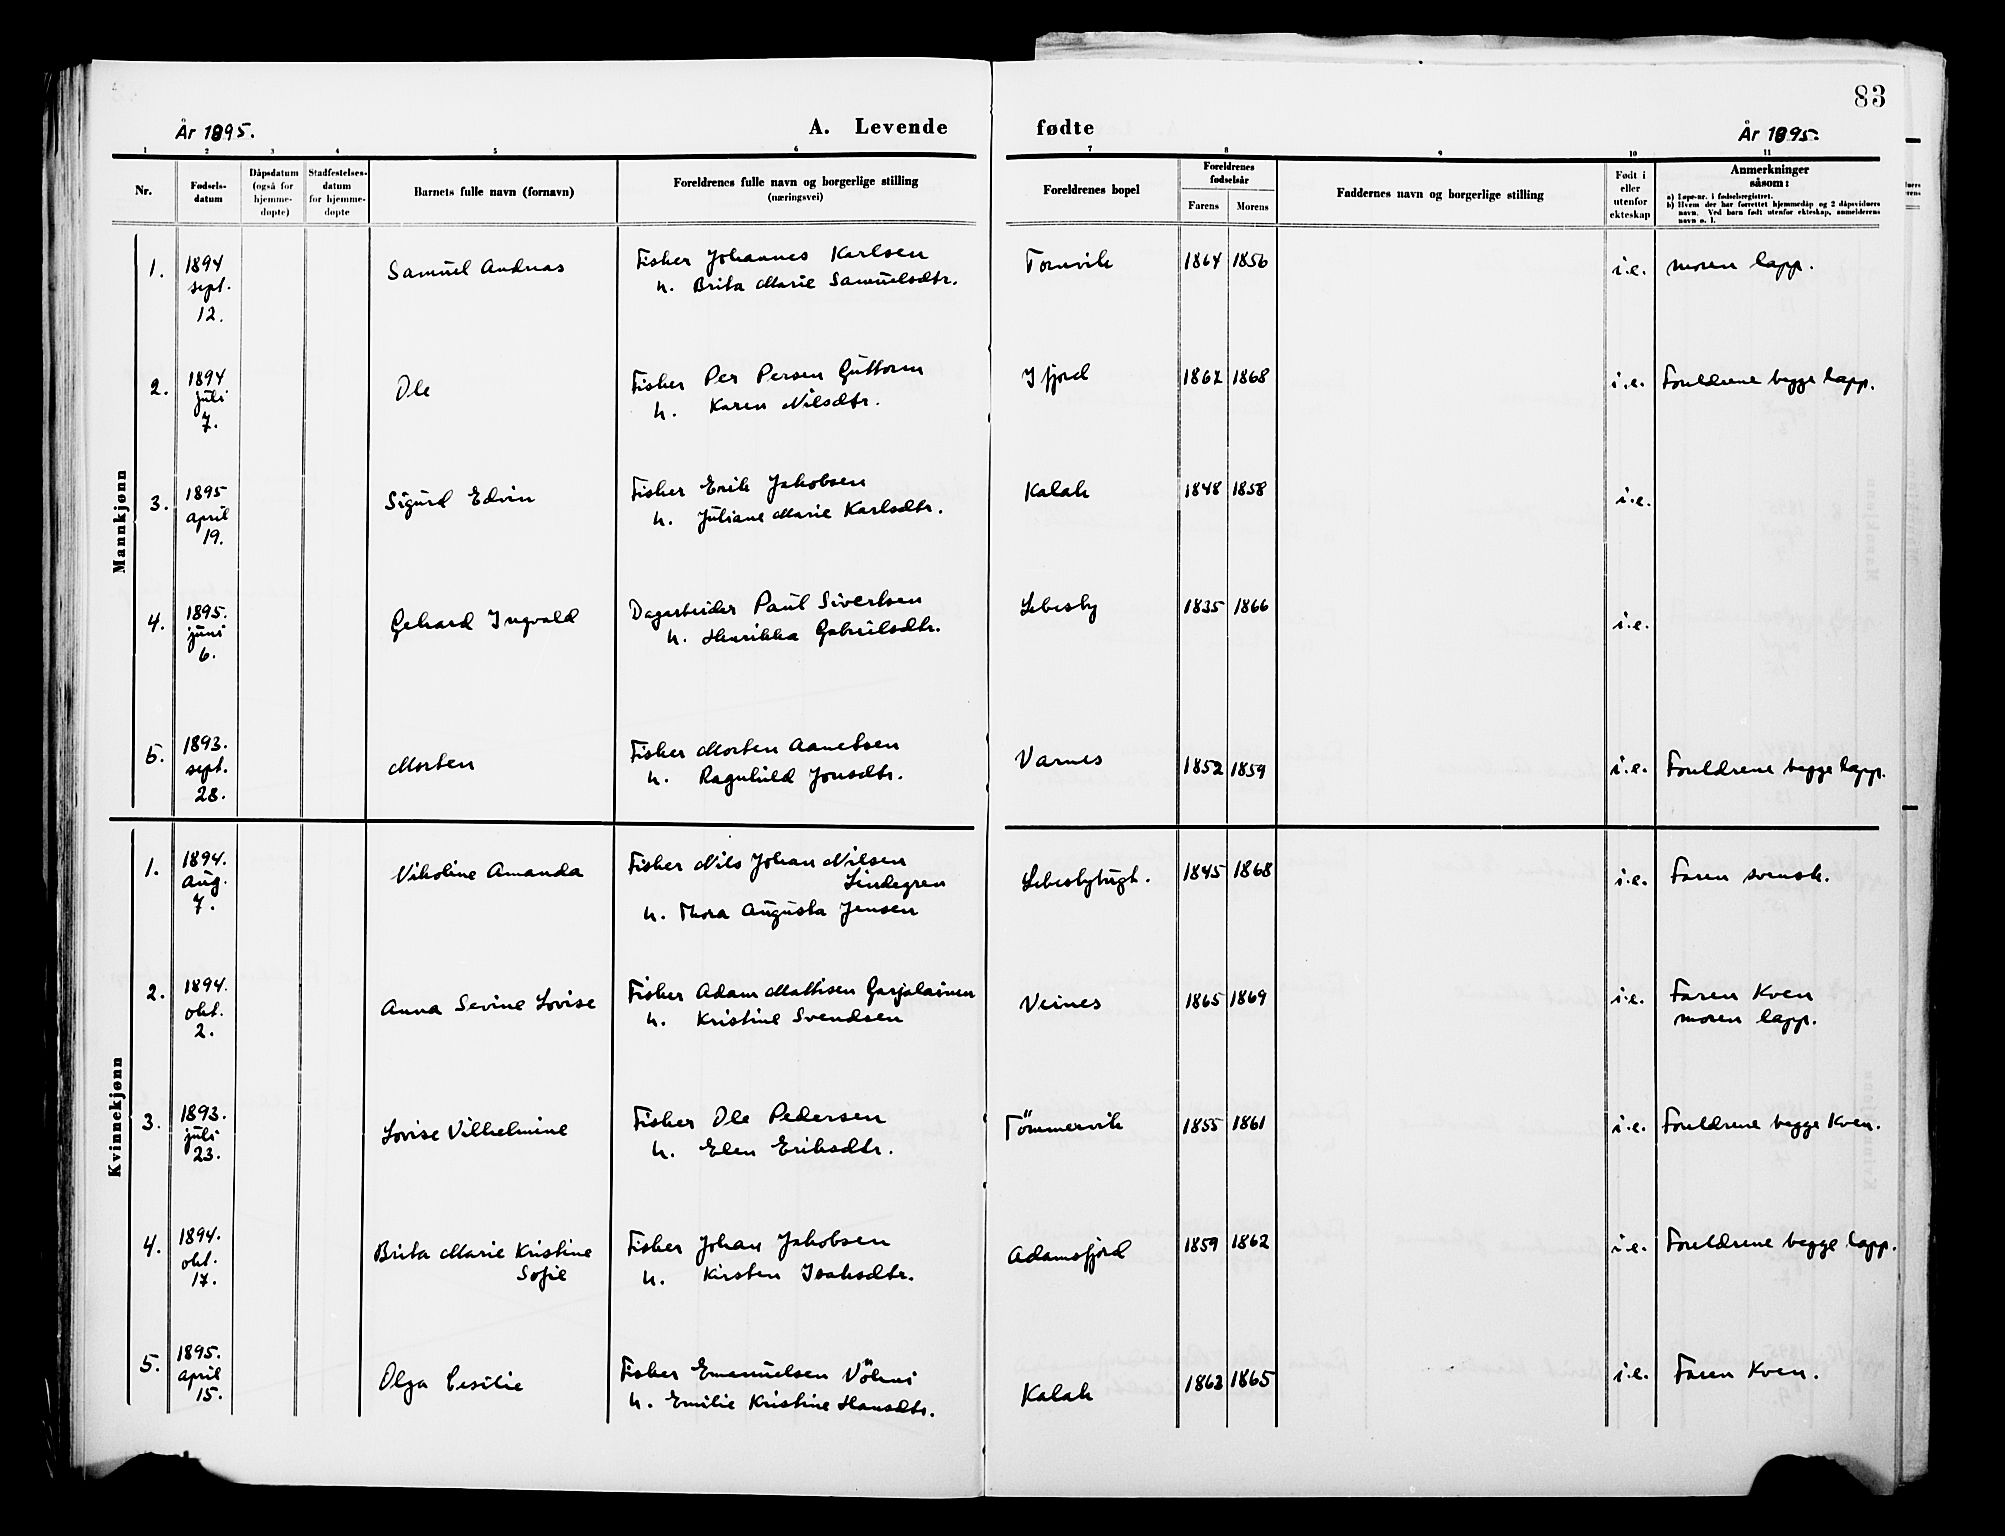 83
År 1895.
A. Levende
fødte
År 1895.
1 2 3 4 5 6 7 8 9 10 11
Nr.
Fødsels-
datum
Dåpsdatum
(også for
hjemme-
døpte)
Stadfestelses-
datum
for hjemme-
døpte
Barnets fulle navn (fornavn)
Foreldrenes fulle navn og borgerlige stilling
(næringsvei)
Foreldrenes bopel
Foreldrenes
fødselsår
Farens Morens
Faddernes navn og borgerlige stilling
Født i
eller
utenfor
ekteskap
Anmerkninger
såsom:
a) Løpe-nr. i fødselsregistret.
b) Hvem der har forrettet hjemmedåp og 2 dåpsvidners
navn. Ved barn født utenfor ekteskap, anmelderens
navn o. l.
Mannkjønn
1. 1894 sept. 12. Samuel Andreas
Fisker Johannes Karlsen
h. Brita Marie Samuelsdtr.
Tornvik 1864 1856 i.e. moren lapp.
2. 1894 juli 7. Ole
Fisker Per Persen Guttorm
h. Karen Nilsdtr.
Ifjord 1862 1868 i.e. Foreldrene begge lapp.
3. 1895 april 19. Sigurd Edvin
Fisker Erik Jakobsen
h. Juliane Marie Karlsdtr.
Kalak 1848 1858 i.e.
4. 1895. juni 6. Gehard Ingvald
Dagarbeider Paul Sivertsen
h. Henrikka Gabrielsdtr.
Lebesby 1835 1866 i.e.
5. 1893. sept. 28. Morten
Fisker Morten Aanetsen
h. Ragnhild Jonsdtr.
Varnes 1852 1859 i.e. Foreldrene begge lapp.
Kvinnekjønn
1. 1894. aug. 7. Vikoline Amanda
Fisker Nils Johan Nilsen
Lindegren
h. Thora Augusta Jensen
Lebesbybugt. 1845 1868 i.e. Faren svensk.
2. 1894. okt. 2. Anna Sevine Lovise
Fisker Adam Mathisen Garjalainen
h. Kristine Svendsen
Veines 1865 1869 i.e. Faren Kven
moren lapp.
3. 1893. juli 23. Lovise Vilhelmine
Fisker Ole Pedersen
h. Elen Eriksdtr.
Tömmervik 1855 1861 i.e. Foreldrene begge Kven.
4. 1894. okt. 17. Brita Marie Kristine
Sofie
Fisker Johan Jakobsen
h. Kirsten Isaksdtr.
Adamsfjord 1859 1862 i.e. Foreldrene begge lapp.
5. 1895. april 15. Olga Cesilie
Fisker Emanuelsen Völmi
h. Emilie Kristine Hansdtr.
Kalak 1863 1865 i.e. Faren Kven.